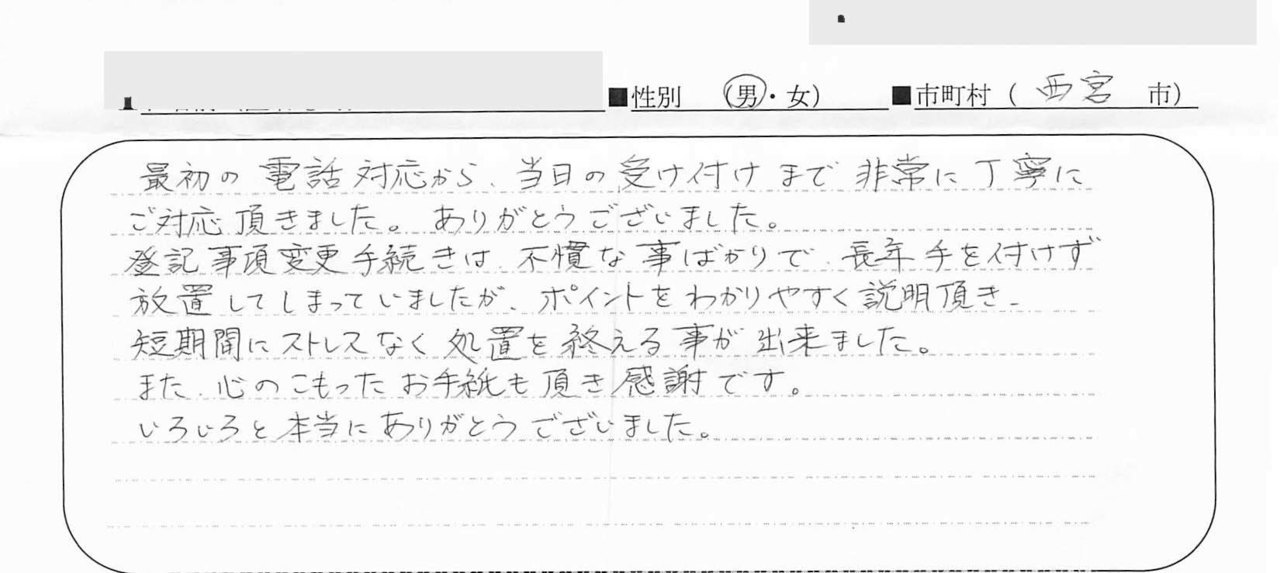 ■性別 （男・女） ■市町村（ 西宮 市）
最初の電話対応から、当日の受け付けまで非常に丁寧に
ご対応頂きました。ありがとうございました。
登記事項変更手続きは、不慣な事ばかりで、長年手を付けず
放置してしまっていましたが、ポイントをわかりやすく説明頂き、
短期間にストレスなく処置を終える事が出来ました。
また、心のこもったお手紙も頂き感謝です。
いろいろと本当にありがとうございました。